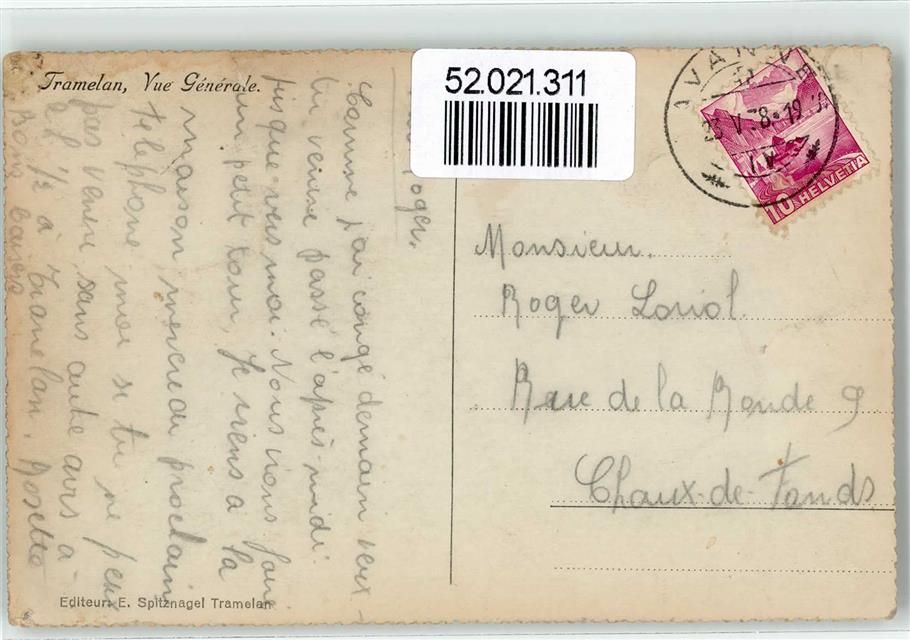 Tramelan, Vue Générale.
52.021.311
25 V 38-19
10 HELVETIA
Roger,
Comme j'ai congé demain veux-
tu venire passé l'après-midi
jusque vers moi. Nous irons faire
un petit tour, Je viens à la
maison mercredi prochain
téléphone moi si tu ne peux
pas venire sans autre avis à
1/2 à Tramelan. Josette
Bons baisers
Monsieur.
Roger Loriol.
Rue de la Ronde 9.
Chaux-de-Fonds
Editeur: E. Spitznagel Tramelan